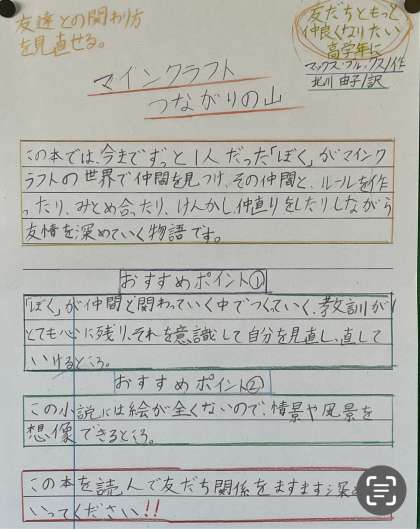 友達との関わり方
を見直せる。
友だちともっと
仲良くなりたい
高学年に
マックス・ブルックス/作
北川 由子/訳
マインクラフト
つながりの山
この本では、今までずっと1人だった「ぼく」がマインク
ラフトの世界で仲間を見つけ、その仲間と、ルールを作
ったり、みとめ合ったり、けんかし仲直りをしたりしながら
友情を深めていく物語です。
おすすめポイント①
「ぼく」が仲間と関わっていく中でつくっていく、教訓が
とても心に残り、それを意識して自分を見直し、直して
いけるところ。
おすすめポイント②
この小説には絵が全くないので、情景や風景を
想像できるところ。
この本を読んで友だち関係をますます深め
いってください!!